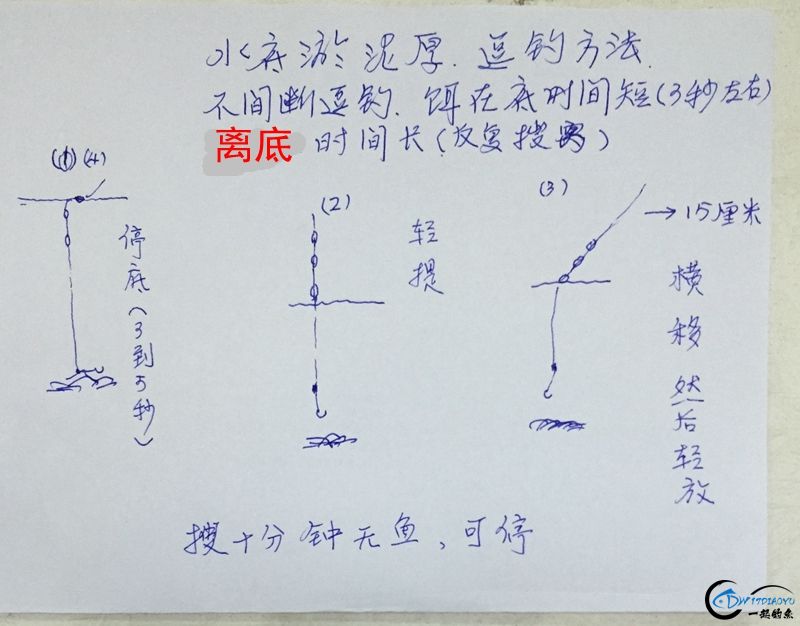 水底淤泥厚.逗钓方法.
不间断逗钓.饵在底时间短(3秒左右)
离底时间长(反复搜)
(1)(4)
停底(3到5秒)
(2)
轻提
(3)
→15厘米
横移然后轻放
搜十分钟无鱼,可停
17DIAOYU
一起钓鱼